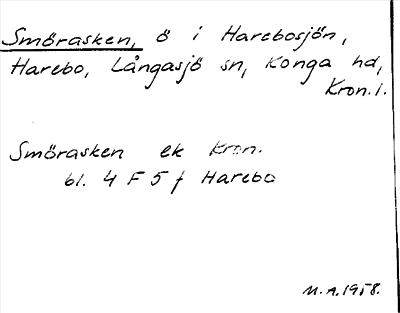 Smörasken, ö i Harebosjön,
Harebo, Långasjö sn, Konga hd,
Kron. l.
Smörasken ek Kron.
bl. 4 F 5 f Harebo
M.A. 1958.